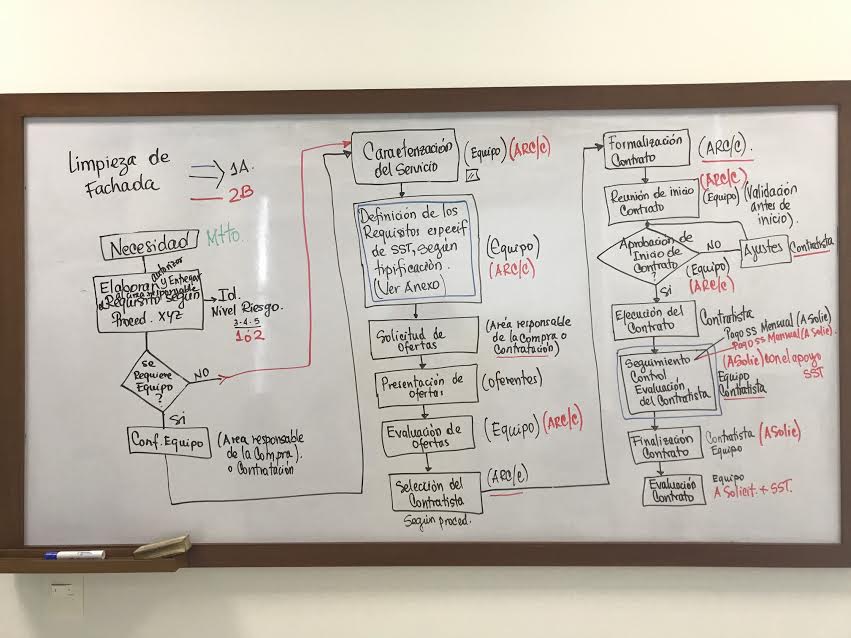 Limpieza de
Fachada
1A.
2B
Necesidad
Mtto.
Elaborar, autorizar y Entregar
al area responsable
el Requisito según
Proced. XYZ
Id.
Nivel Riesgo.
3-4-5
1ó2
Se
Requiere
Equipo
?
NO
Si
Conf. Equipo
(Area responsable
de la Compra)
o Contratación
Caracterización
del Servicio
(Equipo) (ARC/C)
Definición de los
Requisitos especif
de SST, según
tipificación.
(Ver Anexo)
(Equipo)
(ARC/C)
Solicitud de
Ofertas
(Area responsable
de la Compra o
Contratación)
Presentación de
ofertas
(Oferentes)
Evaluación de
Ofertas
(Equipo) (ARC/C)
Selección del
Contratista
(ARC/C)
Según proced.
Formalización
Contrato
(ARC/C).
Reunión de inicio
Contrato
(ARC/C)
(Equipo) (Validación
antes de
inicio).
Aprobación de
Inicio de
Contrato
?
NO
Ajustes
Contratista
(Equipo)
(ARC/C)
Si
Ejecución del
Contrato
Contratista
Pago SS Mensual (A Solic)
Pago SS Mensual (A Solic).
Seguimiento
Control
Evaluación
del Contratista
(ASolic) Con el apoyo
SST
Equipo
Contratista
Finalización
Contrato
Contratista (ASolic)
Equipo
Evaluación
Contrato
Equipo
A Solicit. + SST.